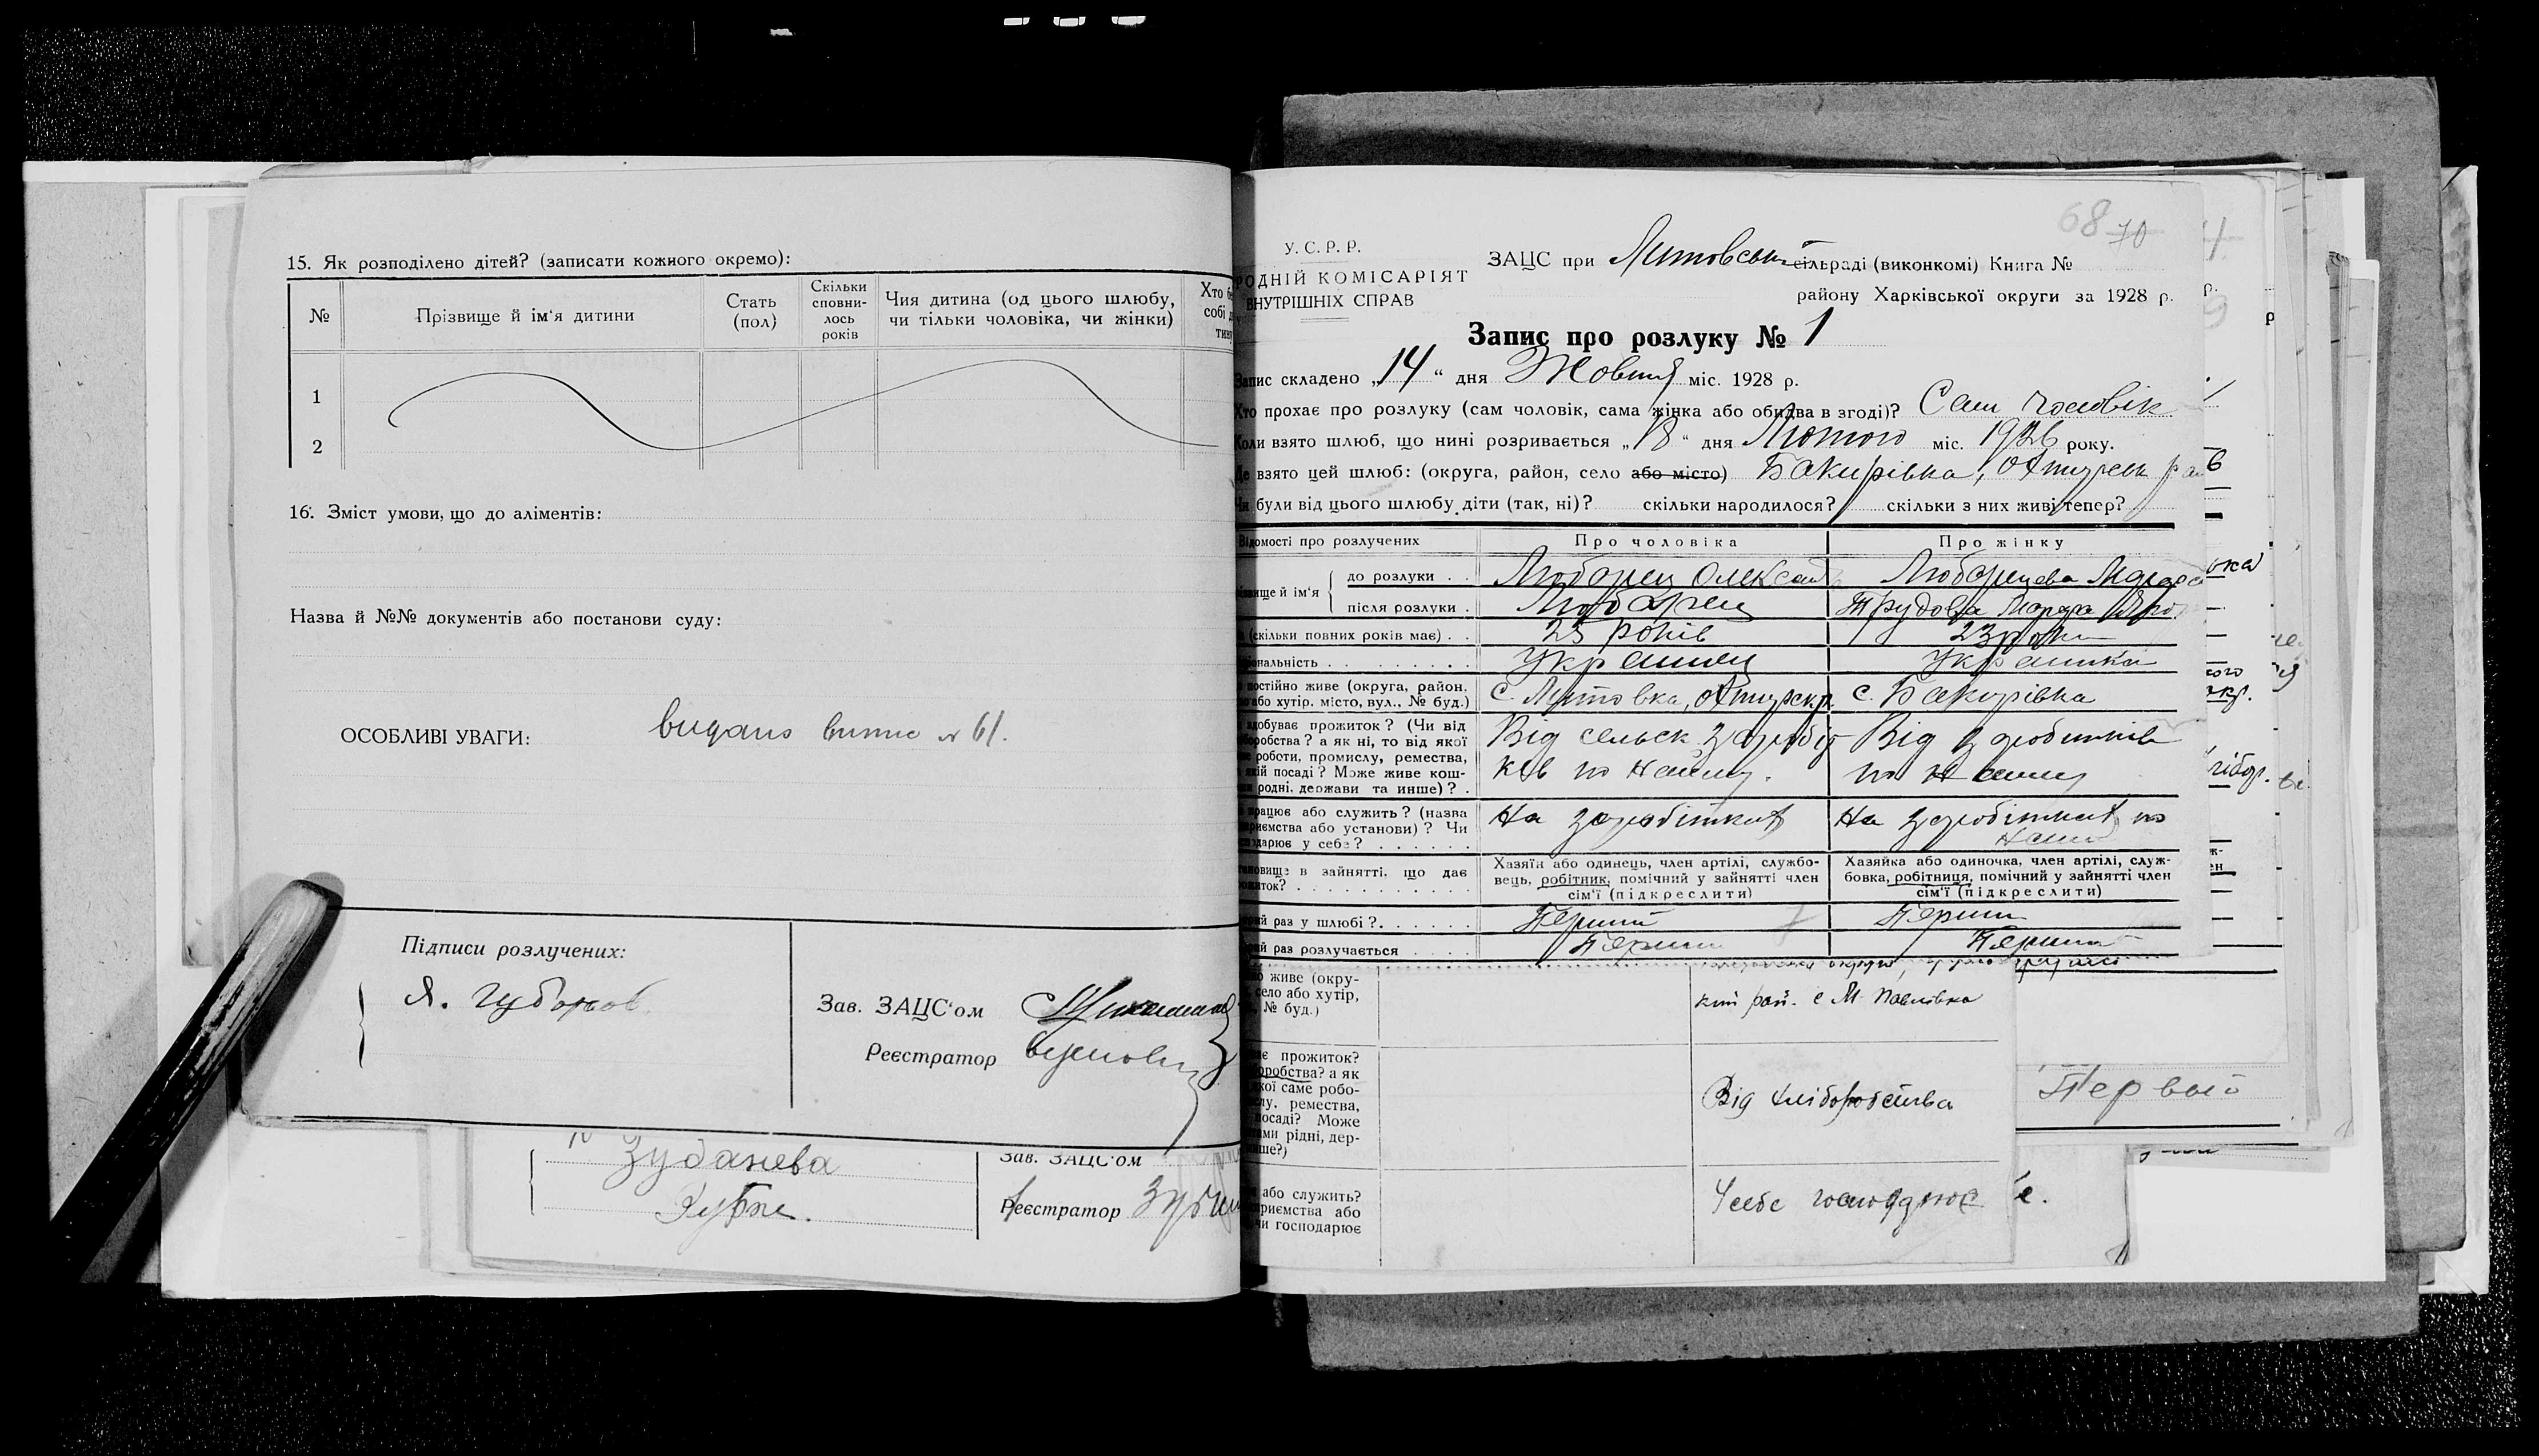 15. Як розподілено дітей? (записати кожного окремо):
№ Прізвище й ім'я дитини Стать (пол) Скільки сповнилось років Чия дитина (од цього шлюбу, чи тільки чоловіка, чи жінки) Хто собі
1
2
16. Зміст умови, що до аліментів:
Назва й №№ документів або постанови суду:
ОСОБЛИВІ УВАГИ: видано випис № 61.
Підписи розлучених:
Я. Губарьов
Зав. ЗАЦС'ом
Реєстратор
Зуданева
Зав. ЗАЦС'ом
Реєстратор
68 70
У. С. Р. Р.
РОДНІЙ КОМІСАРІЯТ
ВНУТРІШНІХ СПРАВ
ЗАЦС при сільраді (виконкомі) Книга №
району Харківської округи за 1928 р.
Запис про розлуку № 1
Запис складено „14“ дня Жовтня міс. 1928 р.
Хто прохає про розлуку (сам чоловік, сама жінка або обидва в згоді)? Сам чоловік
Коли взято шлюб, що нині розривається „18“ дня Лютого міс. 1926 року.
Де взято цей шлюб: (округа, район, село або місто) Бакирівка, Охтирськ
Чи були від цього шлюбу діти (так, ні)? скільки народилося? скільки з них живі тепер?
Відомості про розлучених Про чоловіка Про жінку
ім'я до розлуки Любарец Олексан Любарцева
після розлуки Любарец Трудова
(скільки повних років має) 25 років 23 роки
Украинец Украинка
постійно живе (округа, район,
або хутір, місто, вул., № буд.) с. Охтирск р. с. Бакирівка
здобуває прожиток? (Чи від
? а як ні, то від якої
роботи, промислу, ремества,
якій посаді? Може живе кош-
родні, держави та инше)?
Від сельск. заробіт
ків по найму.
Від заробітків
по найму
працює або служить? (назва
або установи)? Чи
у себе?
На заробітках
На заробітках по
найм
в зайнятті, що дає
Хазяїн або одинець, член артілі, службо-
вець, робітник, помічний у зайнятті член
сім'ї (підкреслити)
Хазяйка або одиночка, член артілі, служ-
бовка, робітниця, помічний у зайнятті член
сім'ї (підкреслити)
раз у шлюбі? Перший Перший
раз розлучається Перший Перший
живе (окру-
село або хутір,
№ буд.)
рай. с М Павлівка
прожиток?
? а як
якої саме робо-
ремества,
посаді? Може
рідні, дер-
Від хліборобства
Первый
або служить?
або
чи господарює
У себе господрює